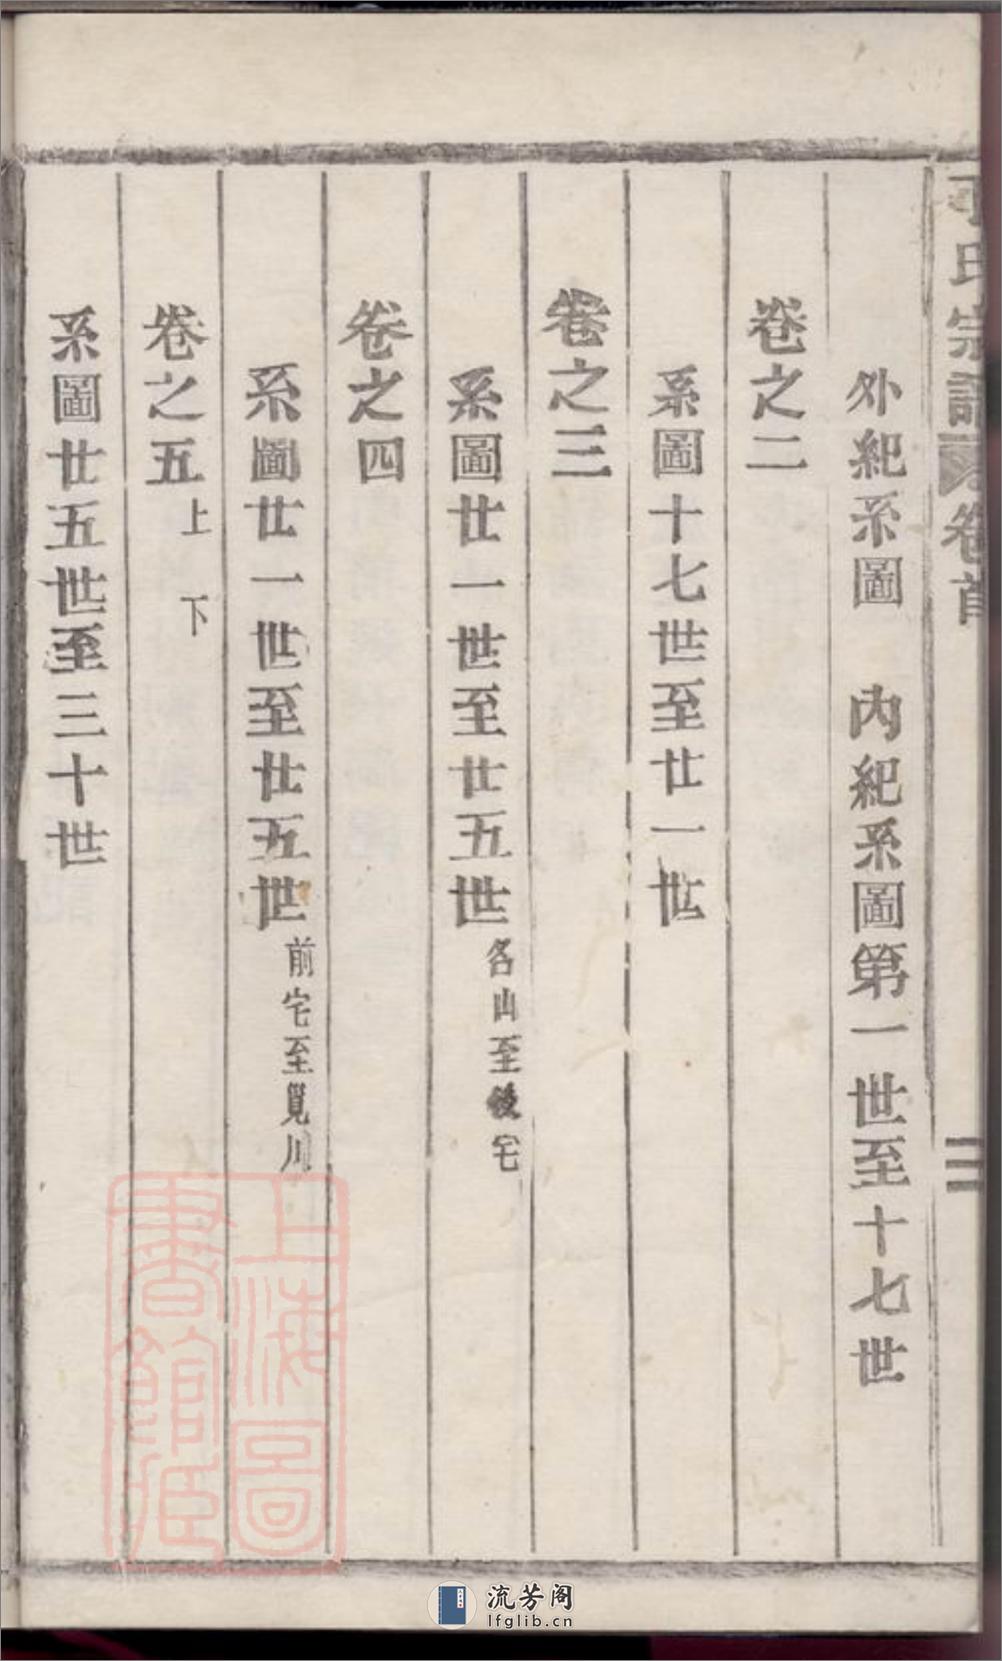 丁氏宗譜 卷首 二
外紀系圖 內紀系圖第一世至十七世
卷之二
系圖十七世至廿一世
卷之三
系圖廿一世至廿五世 各山至後宅
卷之四
系圖廿一世至廿五世 前宅至覓川
卷之五 上 下
系圖廿五世至三十世
上海圖書館藏
流芳阁
lfglib.cn